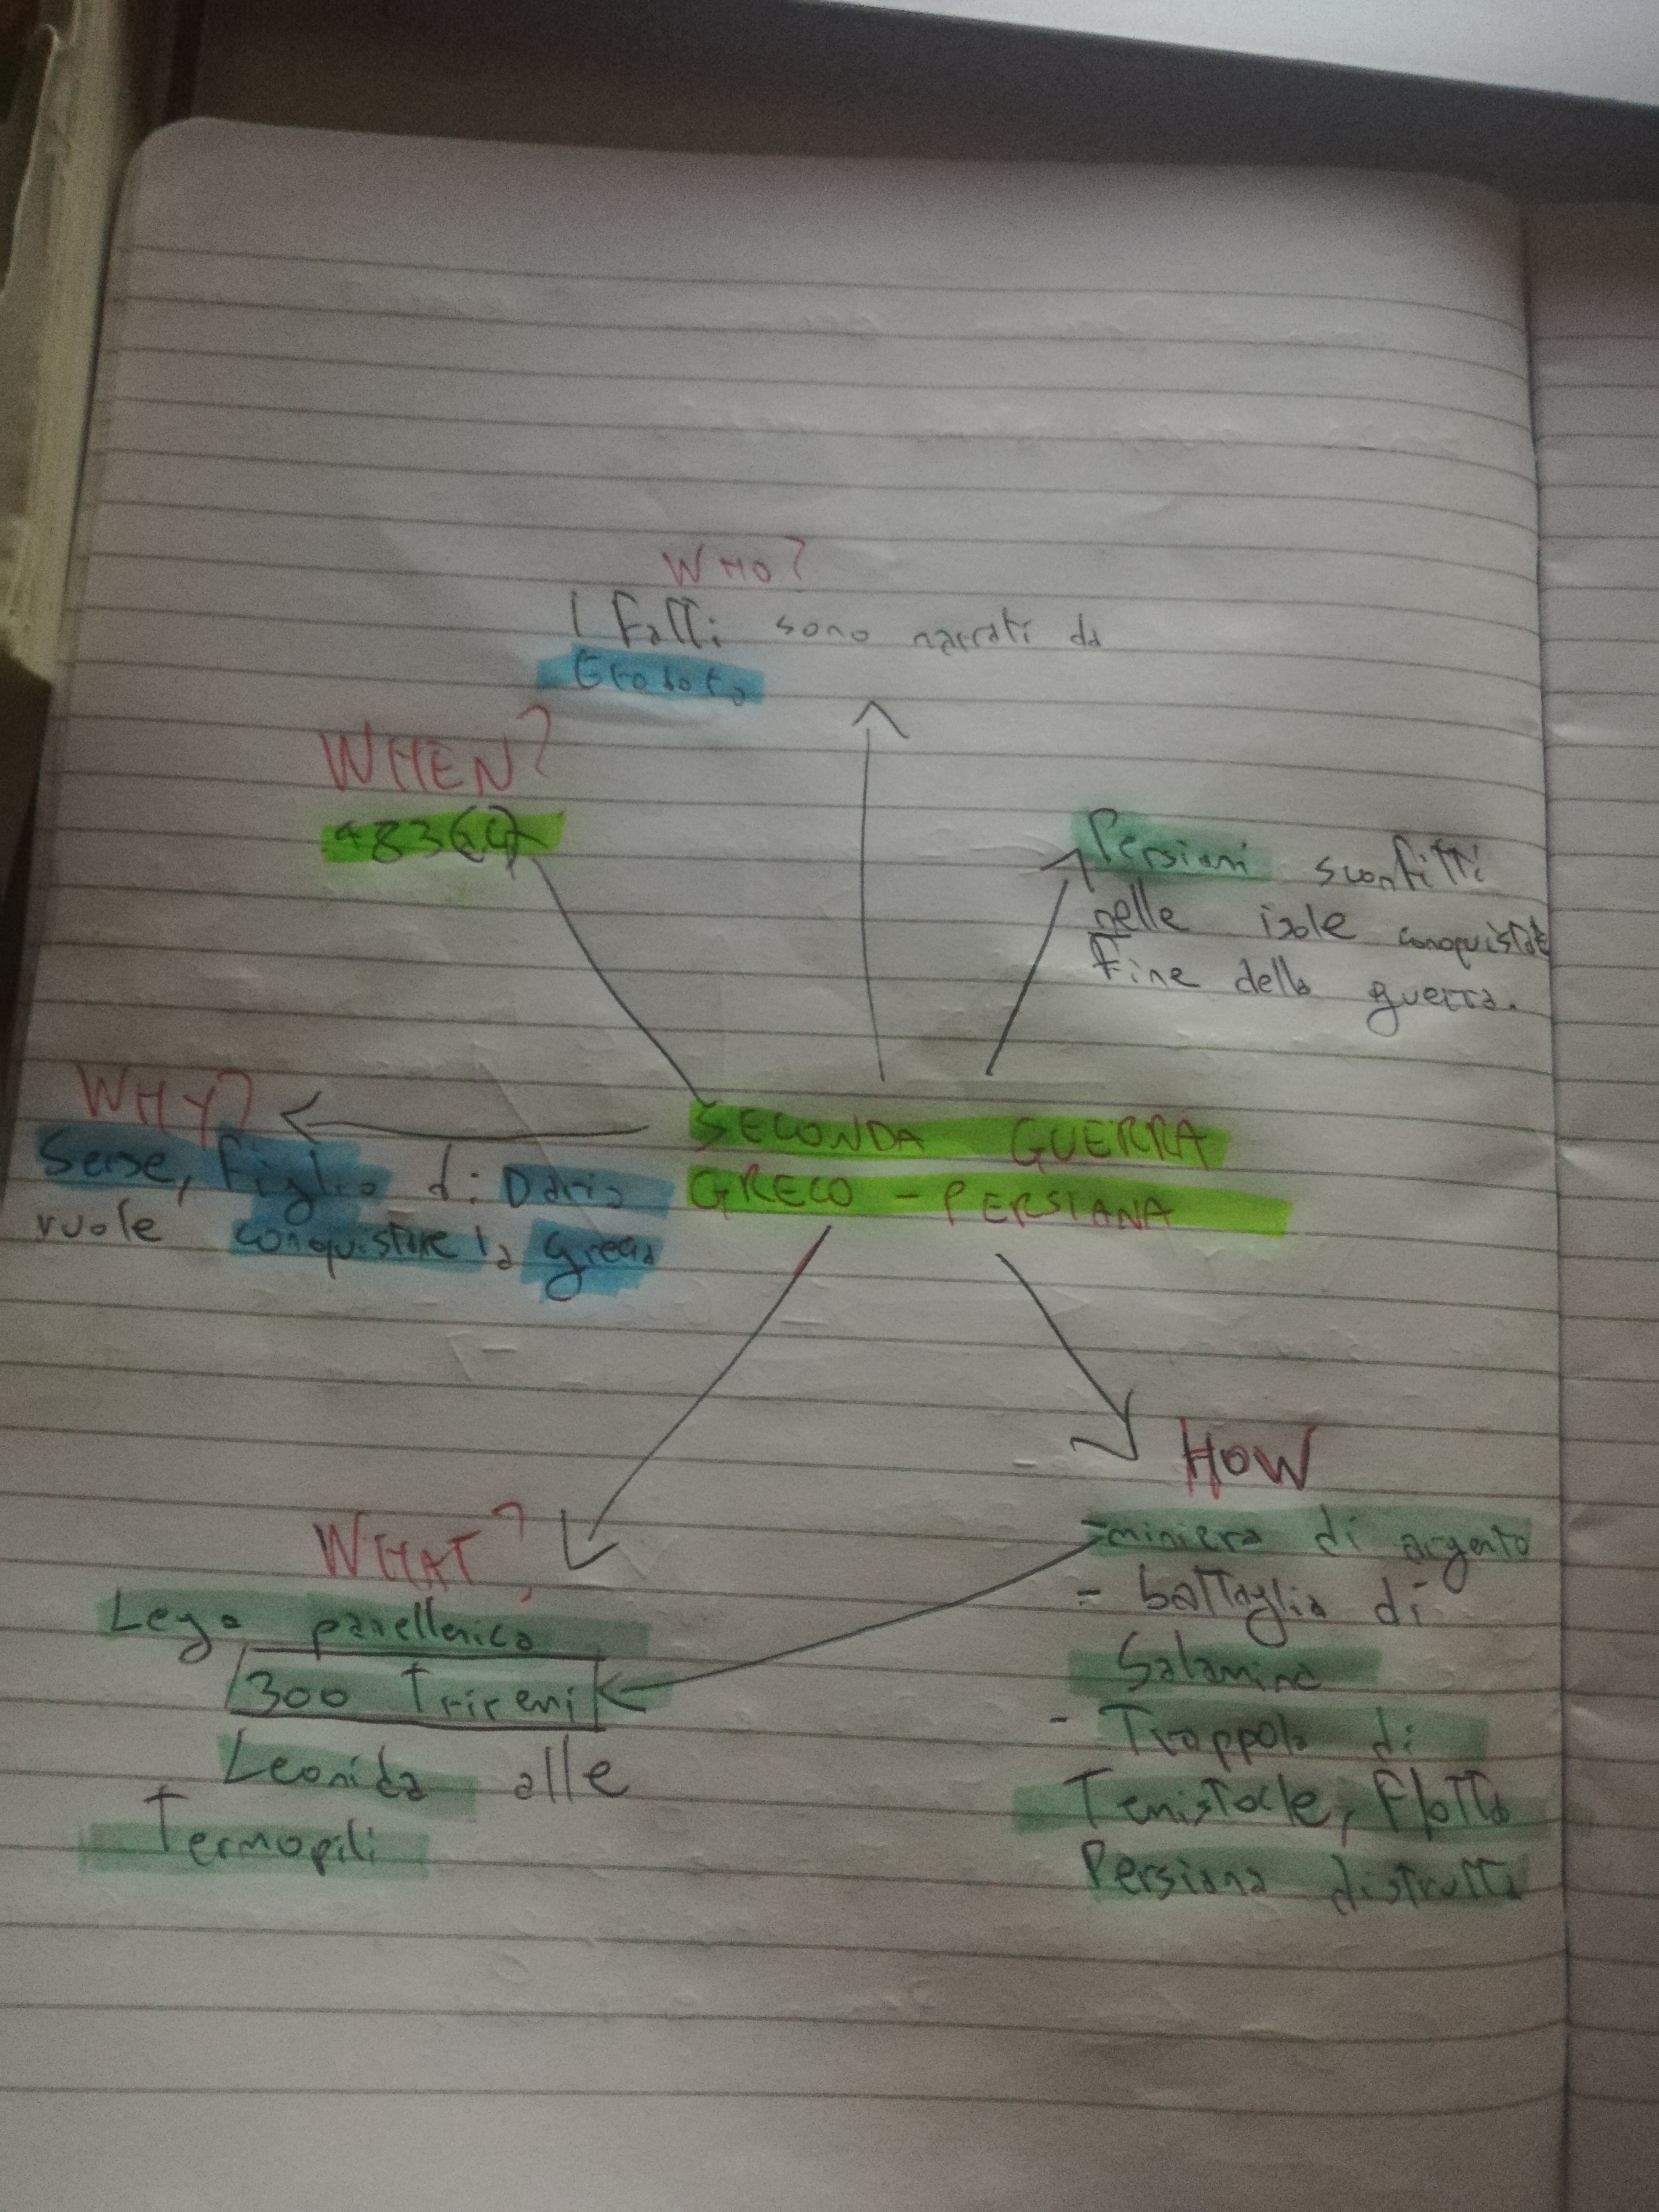 WHO?
I Fatti sono narrati da
Erodoto
WHEN?
483
Persiani sconfitti
nelle isole conquistate
Fine della guerra.
WHY?
Serse, figlio di Dario
vuole conquistare la Grecia
SECONDA GUERRA
GRECO - PERSIANA
HOW
- miniera di argento
- battaglia di
Salamina
- Trappola di
Temistocle, flotta
Persiana distrutta
WHAT?
Lega panellenica
300 Trireni
Leonida alle
Termopili